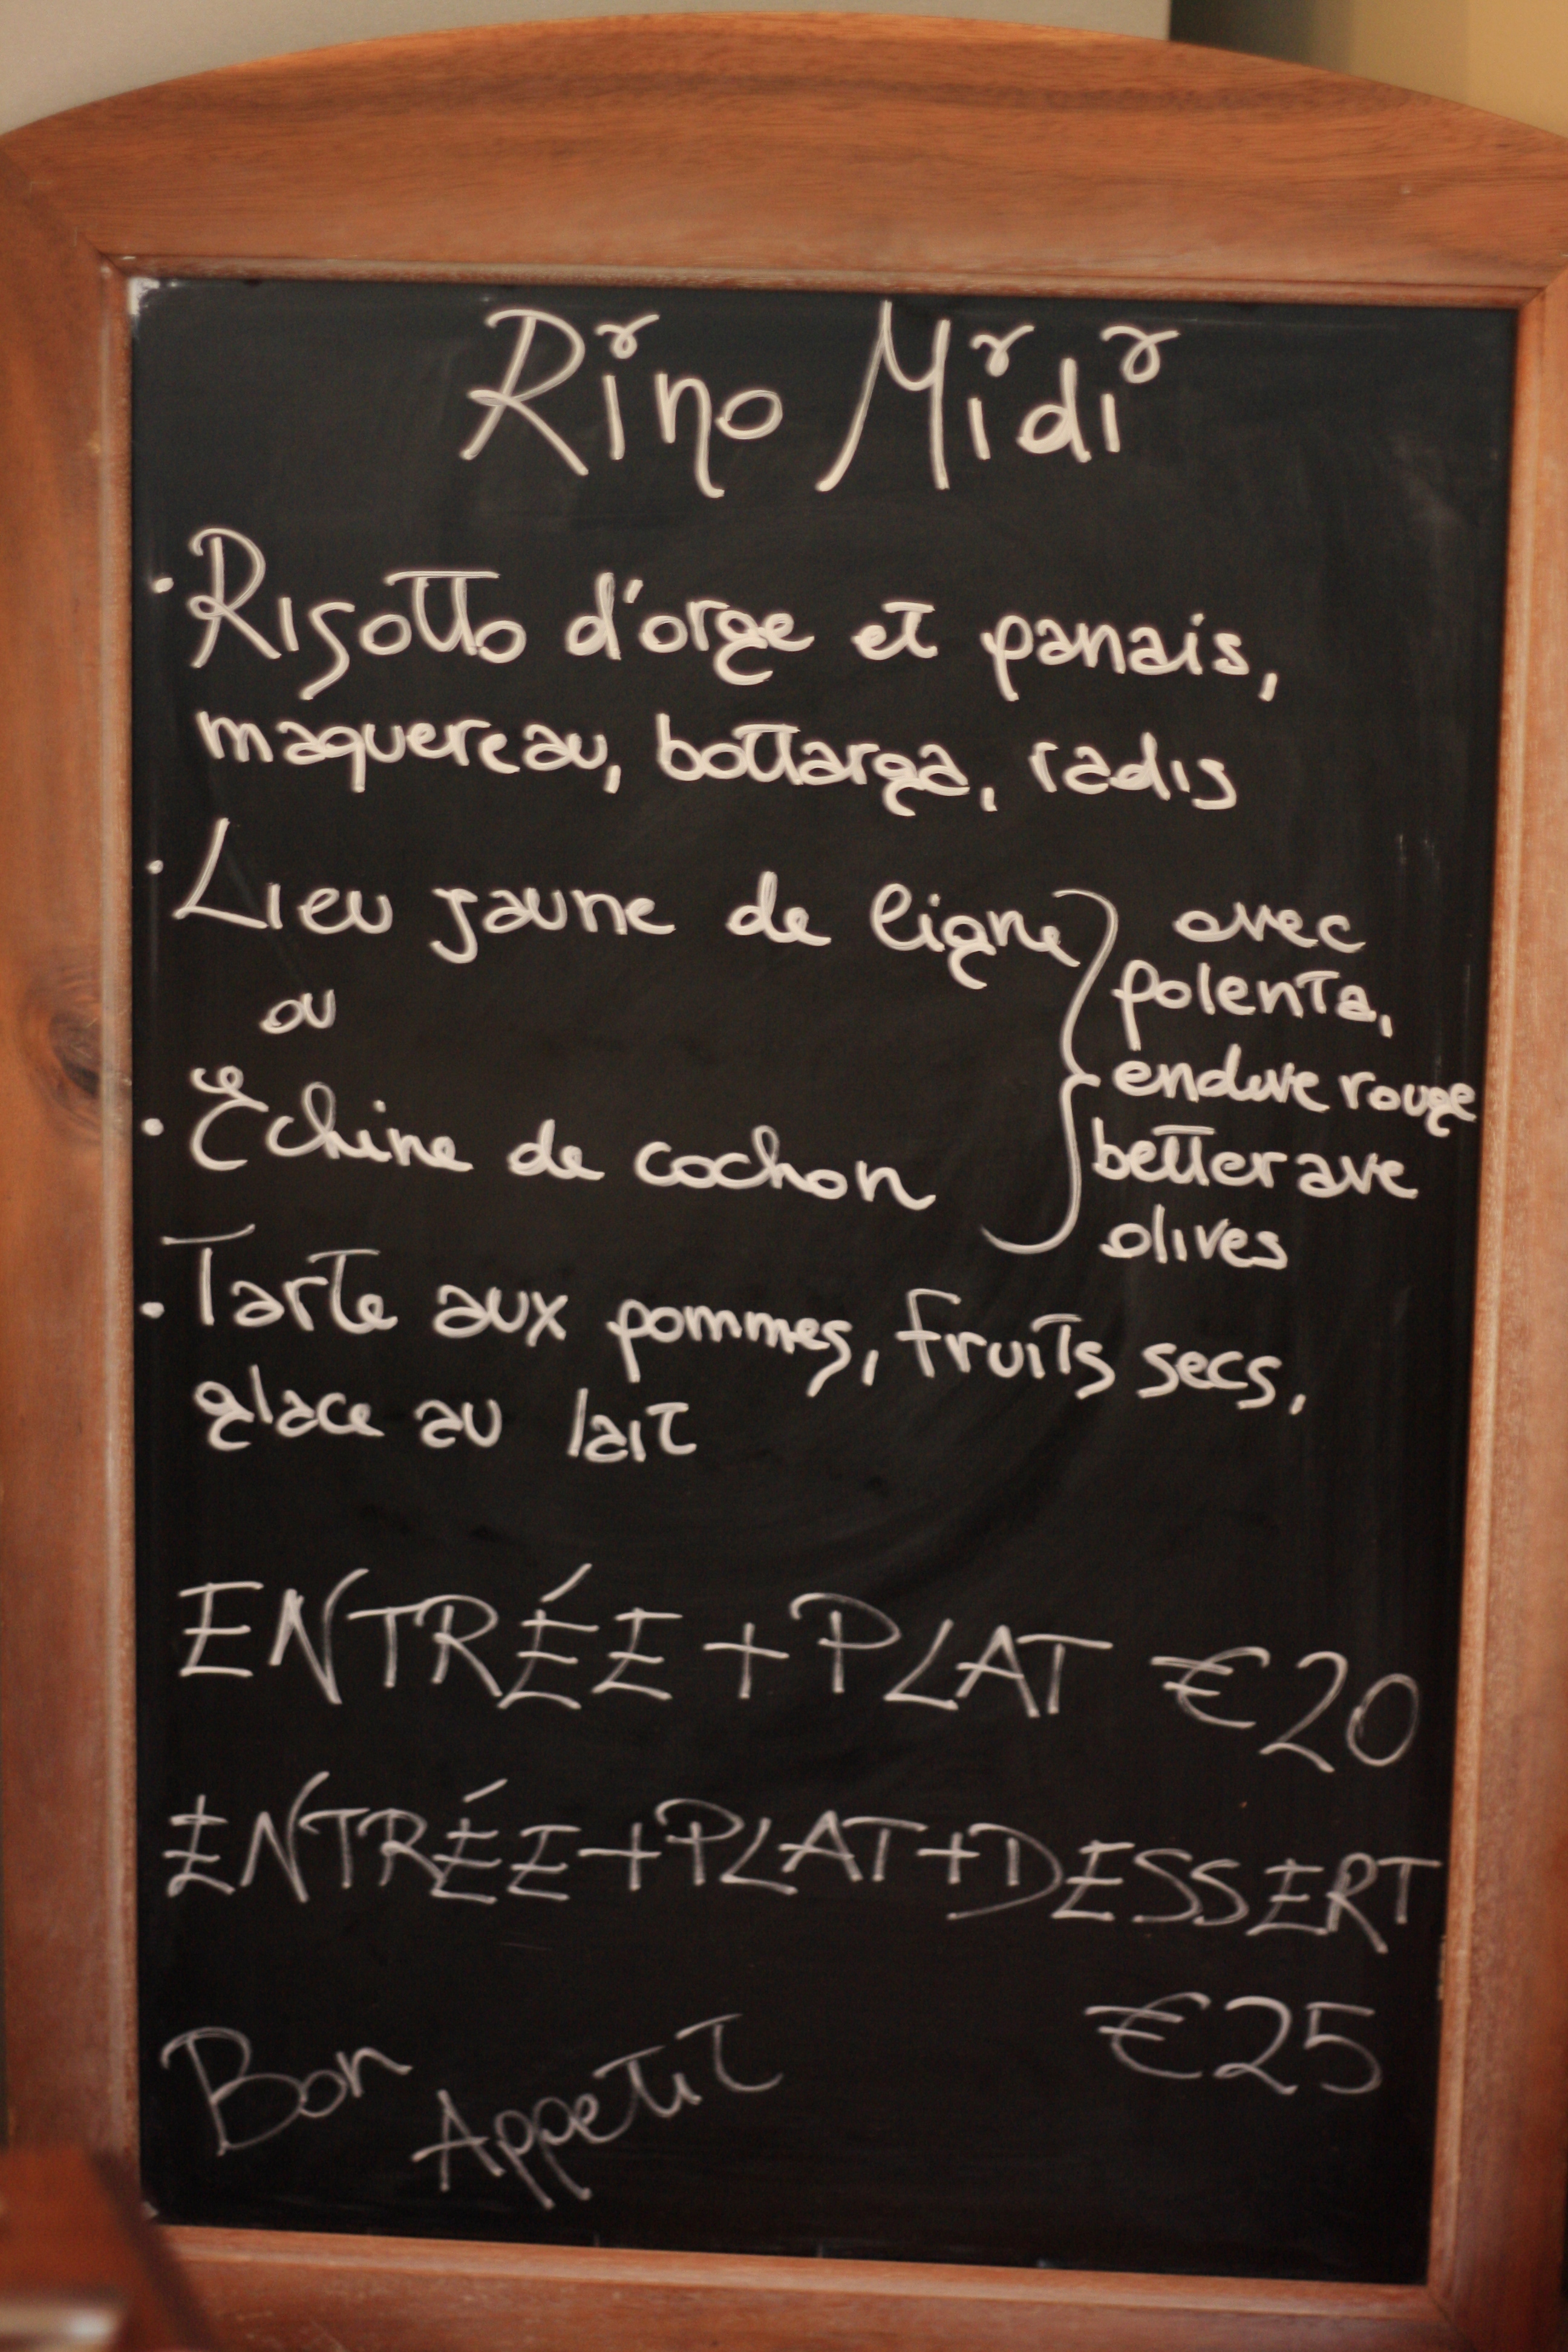 Rino Midi
· Risotto d'orge et panais,
maquereau, bottarga, radis
· Lieu jaune de ligne
ou
· Échine de cochon
avec
polenta,
endive rouge
betterave
olives
· Tarte aux pommes, fruits secs,
glace au lait
ENTRÉE + PLAT €20
ENTRÉE + PLAT + DESSERT
€25
Bon
Appetit